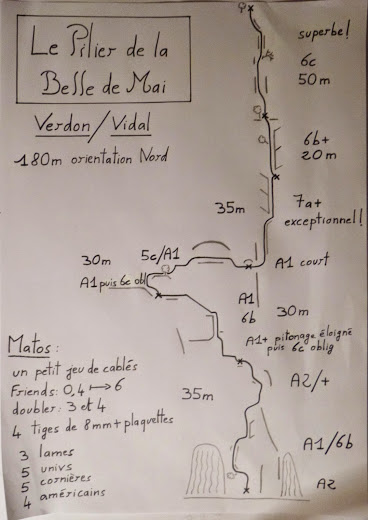 Le Pilier de la
Belle de Mai
Verdon/Vidal
180m orientation Nord
superbe!
6c
50m
6b+
20m
35m
7a+
exceptionnel!
30m
5c/A1
A1 court
A1 puis 6c obl
A1
6b
30m
A1+ pitonage éloigné
puis 6c oblig
35m
A2/+
A1/6b
A2
Matos:
un petit jeu de cablés
Friends: 0,4 ↦ 6
doubler: 3 et 4
4 tiges de 8mm + plaquettes
3 lames
5 univs
5 cornières
4 américains